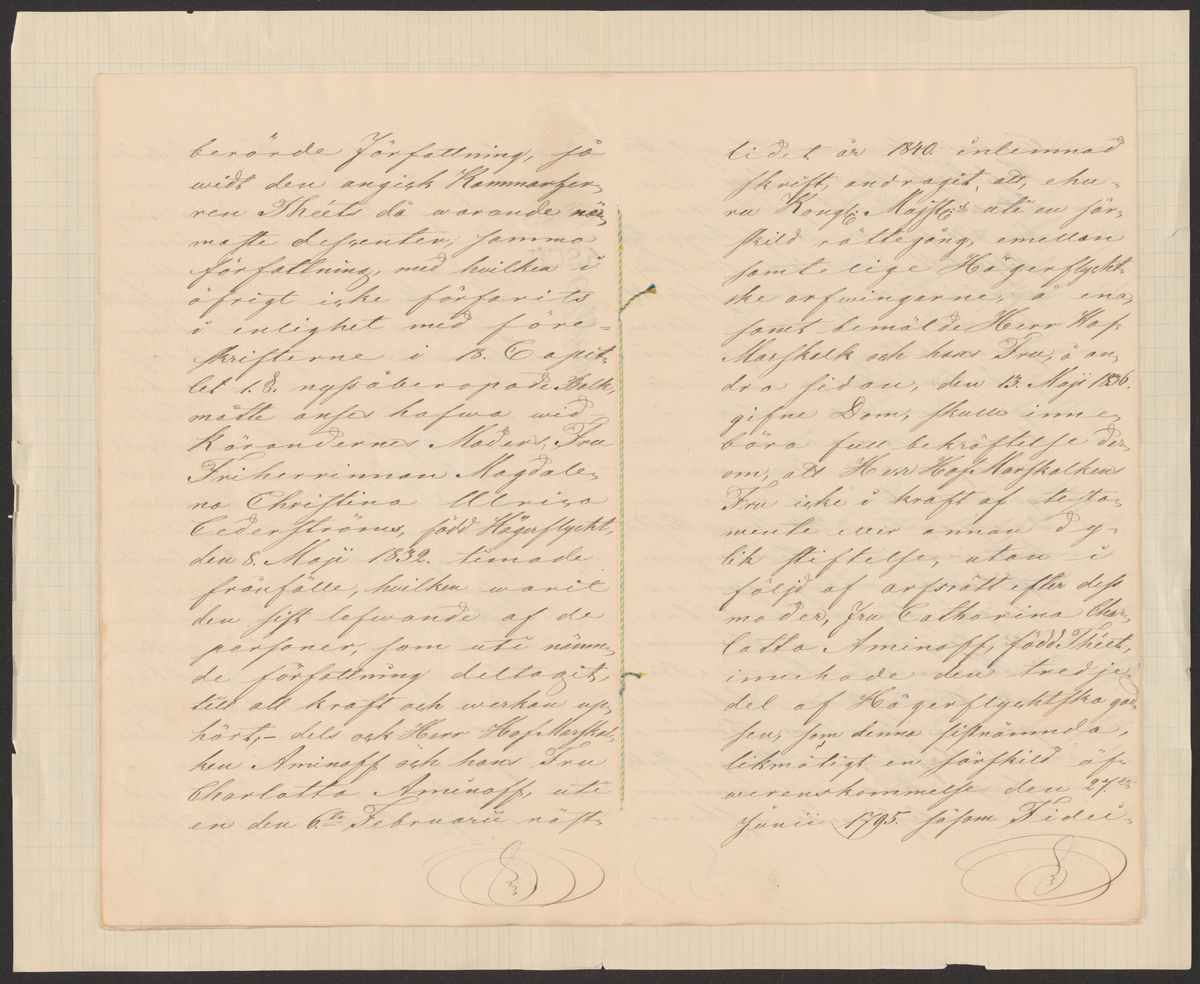 berörde författning, så
widt den angick Kammarher-
ren Théets då warande när-
maste descenter, samma
författning, med hvilken i
öfrigt icke förfarits
i enlighet med före-
skrifterne i 18. Capit-
let 1. §. nyssåberopade Balk,
måtte anses hafwa wid
Kärandernes Moders, Fru
Friherrinnan Magdale-
na Christina Ulrica
Cederströms, född Hägerflycht,
den 8. Maji 1832. timade
frånfälle, hvilken warit
den sist lefwande af de
personer, som uti nämn-
de författning deltagit,
till all kraft och werkan up-
hört,- dels ock Herr HofMarskal-
ken Aminoff och hans Fru
Charlotta Aminoff, uti
en den 6.te Februarii näst-
lidet år 1840. inlemnad
skrift, andragit, att, ehu-
ru Kongl. Maj:ts uti en sär-
skild rättegång, emellan
samtelige Hägerflycht-
ske arfwingarne, å ena,
samt bemälde Herr Hof-
Marskalk och hans Fru, å an-
dra sidan, den 13. Maji 1836.
gifne Dom, skulle inne-
bära full bekräftelse der-
om, att Herr HofMarskalkens
Fru icke i kraft af testa-
mente eller annan dy-
lik stiftelse, utan i
följd af arfsrätt efter dess
moder, fru Catharina Char-
lotta Aminoff, född Théet,
innehade den tredje-
del af Hägerflychtska god-
sen, som denna sistnämnda,
likmätigt en särskild öf-
werenskommelse den 27.de
Junii 1795. såsom Fidei-